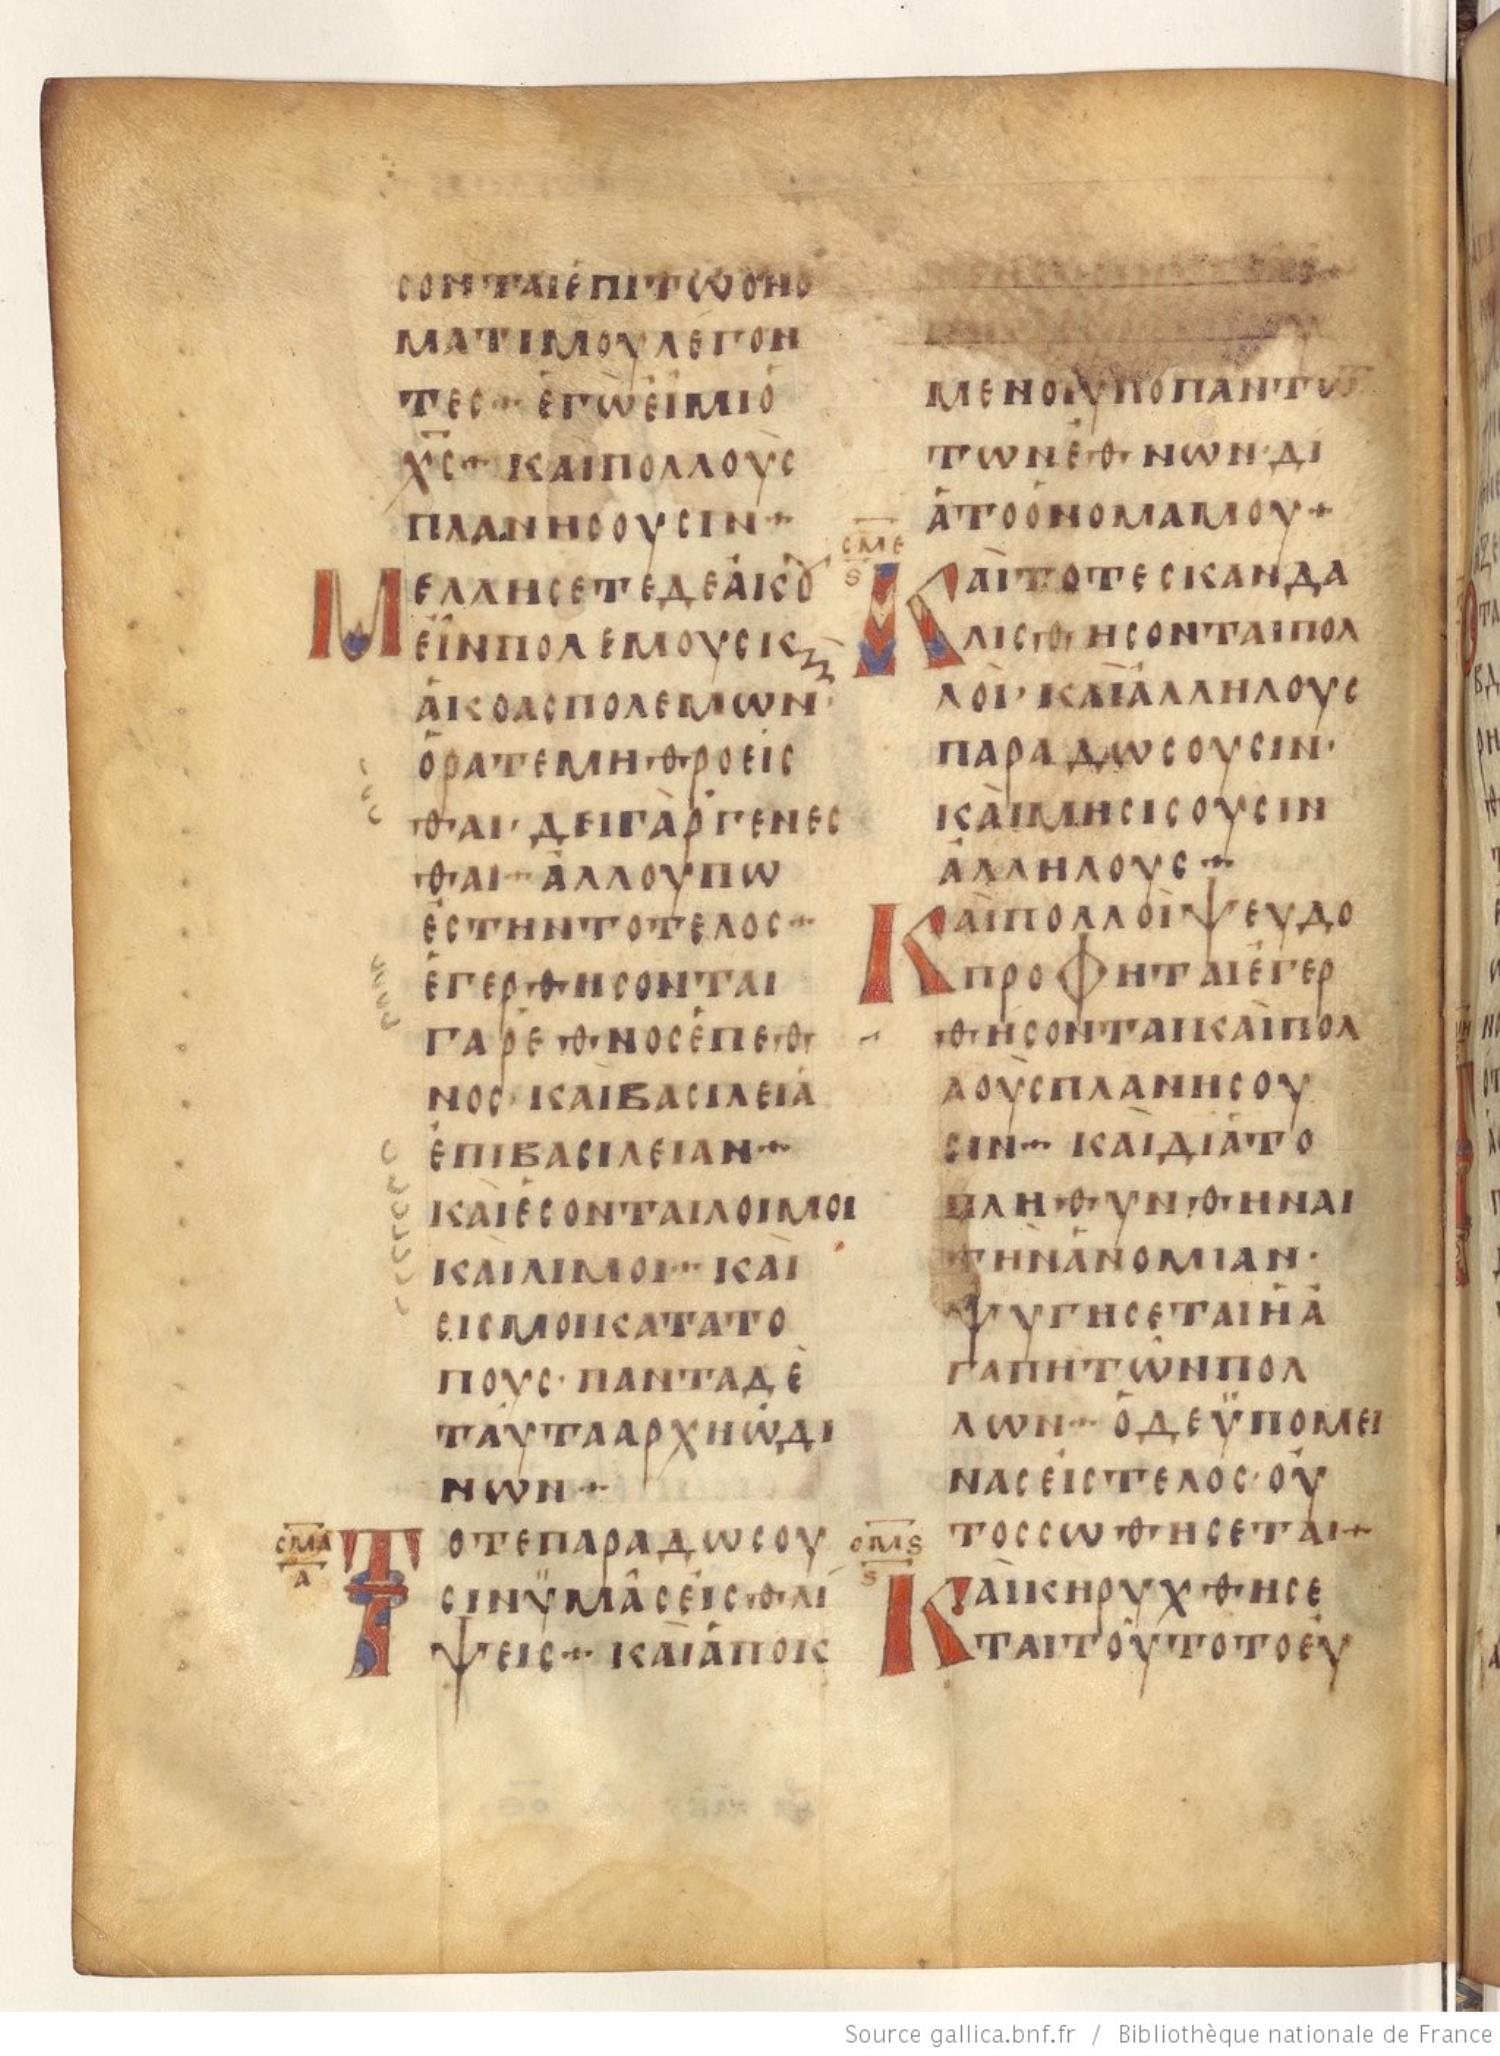 ϲΟΝΤΑΙἐΠΙΤΩΟΝΟ
ΜΑΤΙΜΟΥΛΕΓΟΝ
ΤΕϹ + ἐΓὼἐΙΜΙὁ
Χ̅Ϲ̅ + ΚΑὶΠΟΛΛΟὺϹ
ΠΛΑΝΗϹΟΥϹΙΝ +
ΜΕΛΛΗϹΕΤΕΔΕἀΚΟ
ΕῖΝΠΟΛΕΜΟΥϹΚ
ἀΚΟΑϹΠΟΛΕΜΩΝ·
ὁΡΑΤΕΜΗΘΡΟΕῖϹ
ΘΑΙ· ΔΕΙΓὰΡΓΕΝΕϹ
ΘΑΙ + ἀΛΛΟΥΠΩ
ἐϹΤΗΝΤΟΤΕΛΟϹ +
ἐΓΕΡΘΗϹΟΝΤΑΙ
ΓΑΡἐΘΝΟϹἐΠΕΘ
ΝΟϹ· ΚΑὶΒΑϹΙΛΕΙἀ
ἐΠΙΒΑϹΙΛΕΙΑΝ +
ΚΑὶἐϹΟΝΤΑΙΛΟΙΜΟΙ
ΚΑὶΛΙΜΟΙ + ΚΑὶ
ϹΙϹΜΟΙΚΑΤΑΤΟ
ΠΟΥϹ· ΠΑΝΤΑΔὲ
ΤΑΥΤΑΑΡΧΗὠΔΙ
ΝΩΝ +
ϹΜΑ
Α
ΤΟΤΕΠΑΡΑΔΩϹΟΥ
ϹΙΝΫΜᾶϹΕἰϹΘΛΙ
ΨΕΙϹ + ΚΑὶἀΠΟΚ
ΜΕΝΟΙΥΠΟΠΑΝΤΩ
ΤΩΝἐΘΝΩΝ· ΔΙ
ἀΤΟὄΝΟΜΑΜΟΥ +
ϹΜΕ
Ϛ
ΚΑὶΤΟΤΕϹΚΑΝΔΑ
ΛΙϹΘΗϹΟΝΤΑΙΠΟΛ
ΛΟὶ· ΚΑὶἀΛΛΗΛΟΥϹ
ΠΑΡΑΔΩϹΟΥϹΙΝ·
ΚΑὶΜΗϹΙϹΟΥϹΙΝ
ἀΛΛΗΛΟΥϹ +
ΚΑὶΠΟΛΛΟὶΨΕΥΔΟ
ΠΡΟΦΗΤΑΙἐΓΕΡ
ΘΗϹΟΝΤΑΙΚΑὶΠΟΛ
ΛΟὺϹΠΛΑΝΗϹΟΥ
ϹΙΝ + ΚΑὶΔΙἀΤΟ
ΠΛΗΘΥΝΘΗΝΑΙ
ΤΗΝἀΝΟΜΙΑΝ·
ΨΥΓΗϹΕΤΑΙἡἀ
ΓΑΠΗΤῶΝΠΟΛ
ΛΩΝ + ὁΔΕΫΠΟΜΕΙ
ΝΑϹΕἰϹΤΕΛΟϹ· ΟὙ
ΤΟϹϹΩΘΗϹΕΤΑΙ +
ϹΜϚ
Ϛ
ΚΑὶΚΗΡΥΧΘΗϹΕ
ΤΑΙΤΟΥΤΟΤΟΕΥ
Source gallica.bnf.fr / Bibliothèque nationale de France